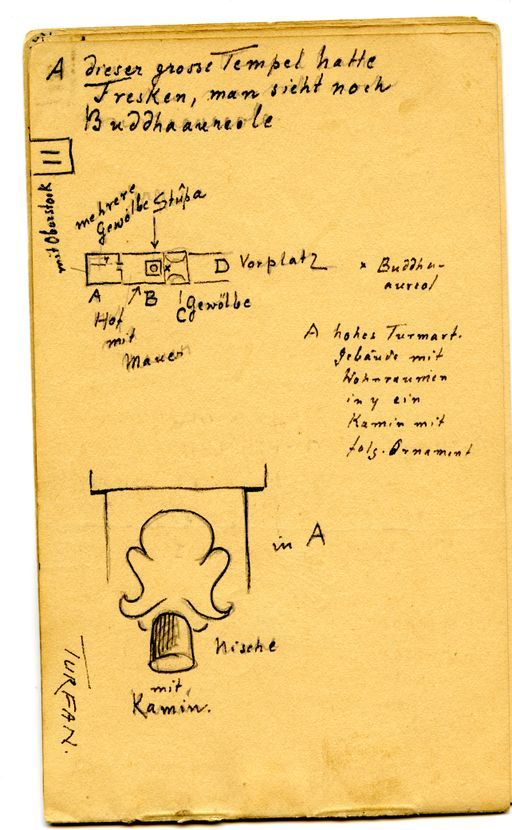 A dieser grosse Tempel hatte
Fresken, man sieht noch
Buddhaaureole
II
mit Oberstock
mehrere
Gewölbe Stûpa
D Vorplatz
A
B
C Gewölbe
Hof
mit
Mauern
x Buddha-
aureol
A hohes Turmart.
Gebäude mit
Wohnraumen
in y ein
Kamin mit
folg. Ornament
in A
Nische
mit
Kamin.
TURFAN.